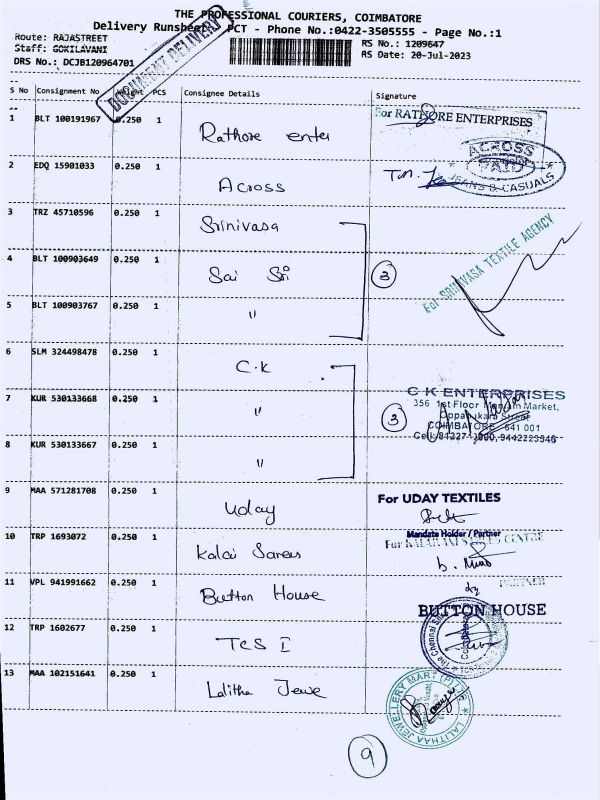 THE PROFESSIONAL COURIERS, COIMBATORE
Delivery Runsheet PCT - Phone No.:0422-3505555 - Page No.:1
Route: RAJASTREET
Staff: GOKILAVANI
DRS No.: DCJB120964701
RS No.: 1209647
RS Date: 20-Jul-2023
DOCUMENT DELIVERY
S No Consignment No Weight PCS Consignee Details Signature
1 BLT 100191967 0.250 1 Rathore enter
For RATHORE ENTERPRISES
2 EDQ 15901033 0.250 1 Across
ACROSS
PAID
JEANS & CASUALS
3 TRZ 45710596 0.250 1 Srinivasa
4 BLT 100903649 0.250 1 Sai Sri
3
For SRINIVASA TEXTILE AGENCY
5 BLT 100903767 0.250 1 "
6 SLM 324498478 0.250 1 C.K
7 KUR 530133668 0.250 1 "
3
C K ENTERPRISES
356 1st Floor Market,
Street
COIMBATORE 641 001
Cell: 9442223946
8 KUR 530133667 0.250 1 "
9 MAA 571281708 0.250 1 Uday
For UDAY TEXTILES
Mandate Holder / Partner
10 TRP 1693072 0.250 1 Kalai Sarees
11 VPL 941991662 0.250 1 Button House
PARTNER
BUTTON HOUSE
12 TRP 1602677 0.250 1 TCS I
13 MAA 102151641 0.250 1 Lalitha Jewe
LALITHAA JEWELLERY MART (P) LTD
9